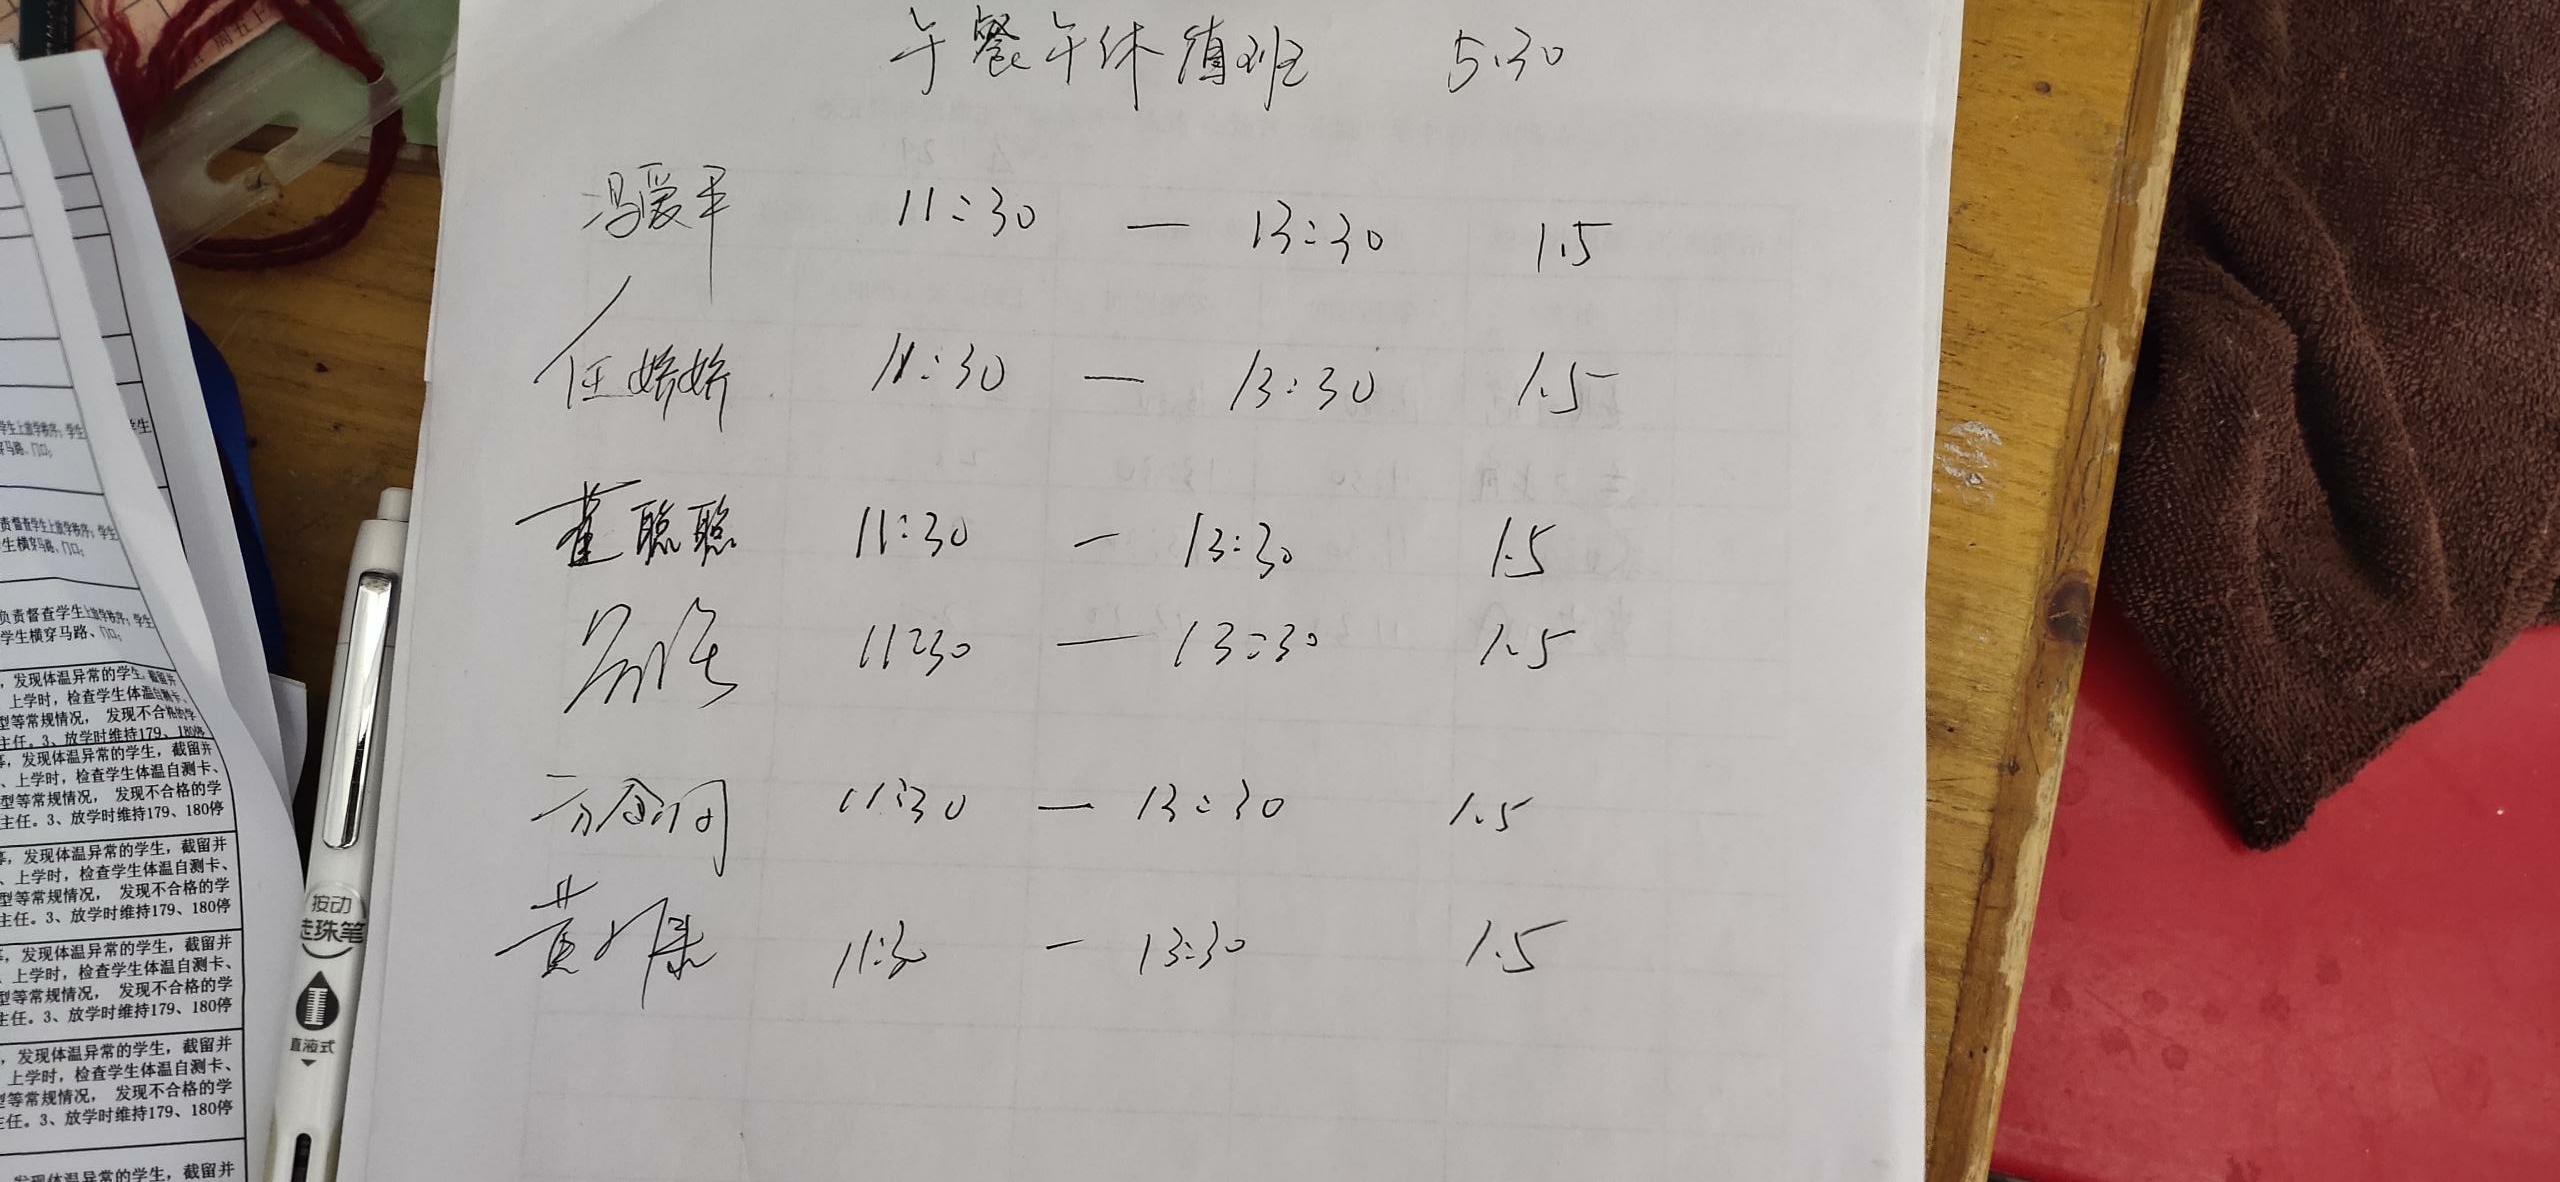 午餐午休值班 5.30
冯爱平 11:30 — 13:30 1.5
任娇娇 11:30 — 13:30 1.5
董聪聪 11:30 — 13:30 1.5
11:30 — 13:30 1.5
11:30 — 13:30 1.5
黄 11:30 — 13:30 1.5
负责督查学生上放学秩序；学生
学生横穿马路、门口；
，发现体温异常的学生，截留并
、上学时，检查学生体温自测卡、
型等常规情况， 发现不合格的学
主任。3、放学时维持179、180停
，发现体温异常的学生，截留并
、上学时，检查学生体温自测卡、
型等常规情况， 发现不合格的学
主任。3、放学时维持179、180停
，发现体温异常的学生，截留并
、上学时，检查学生体温自测卡、
型等常规情况， 发现不合格的学
主任。3、放学时维持179、180停
，发现体温异常的学生，截留并
、上学时，检查学生体温自测卡、
型等常规情况， 发现不合格的学
主任。3、放学时维持179、180停
，发现体温异常的学生，截留并
上学时，检查学生体温自测卡、
型等常规情况， 发现不合格的学
主任。3、放学时维持179、180停
发现体温异常的学生，截留并
按动
走珠笔
直液式